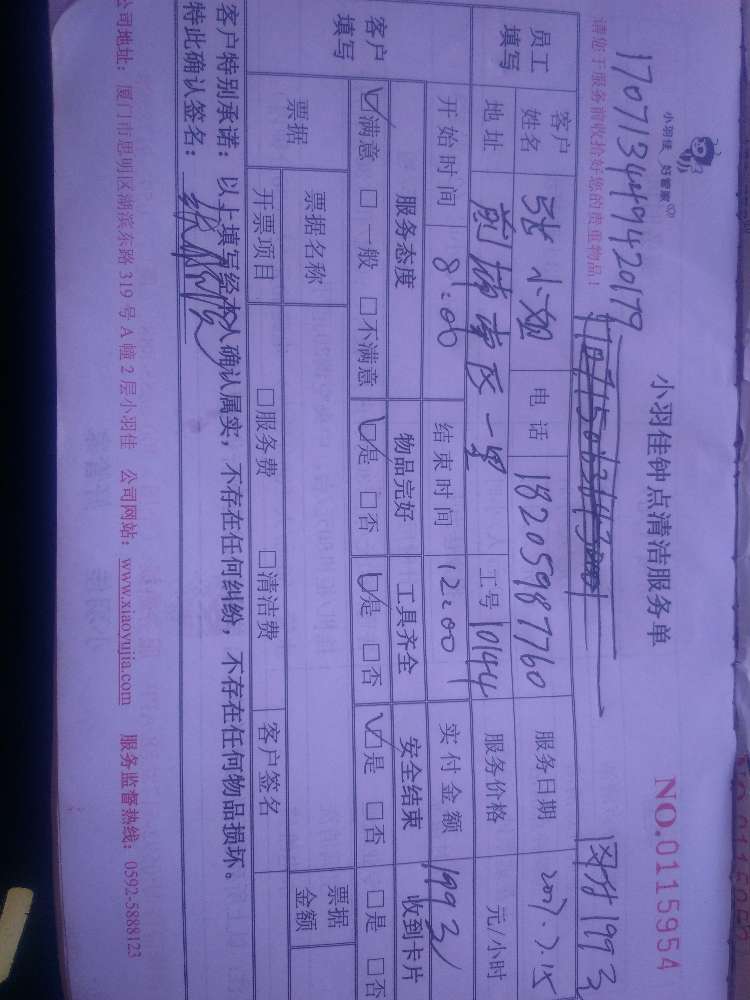 小羽佳 好管家
请您于服务前收拾好您的贵重物品！
小羽佳钟点清洁服务单
NO.0115954
17071344942079
1993
员工填写
客户姓名 张小姐 电话 18205987760 服务日期 2017.7.15
地址 前埔南区一里 工号 10144 服务价格 元/小时
开始时间 8:00 结束时间 12:00 实付金额 1993
客户填写
服务态度 物品完好 工具齐全 安全结束 收到卡片
☑满意 □一般 □不满意 ☑是 □否 ☑是 □否 ☑是 □否 □是 □否
票据 票据名称 票据金额
开票项目 □服务费 □清洁费 客户签名
客户特别承诺：以上填写经本人确认属实，不存在任何纠纷，不存在任何物品损坏。
特此确认签名：
公司地址：厦门市思明区湖滨东路 319 号 A 幢 2 层小羽佳 公司网站：www.xiaoyujia.com 服务监督热线：0592-5888123